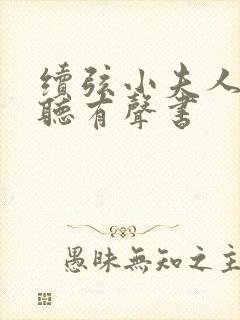 續弦小夫人
聽有聲書
愚昧無知之主